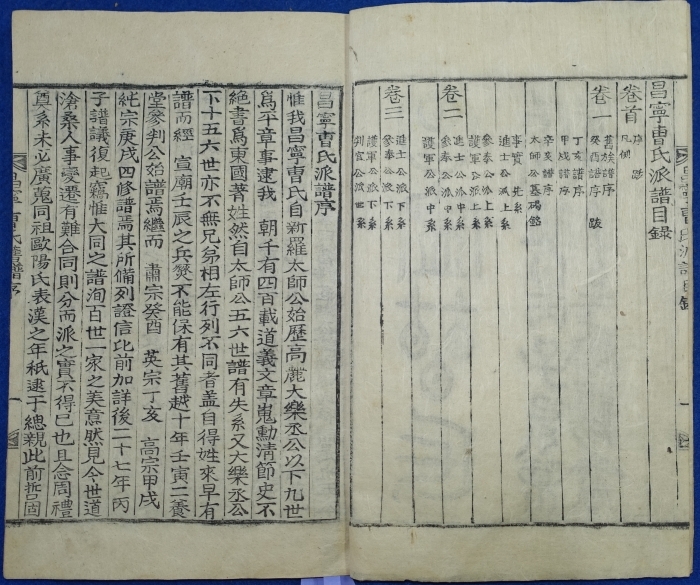 昌寧曺氏派譜目錄
卷首
序 跋
凡例
卷一
舊族譜序
癸酉譜序 跋
丁亥譜序
甲戌譜序
辛亥譜序
太師公墓碣銘
事實 先系
進士公派上系
參奉公派上系
護軍公派上系
卷二
進士公派中系
參奉公派中系
護軍公派中系
卷三
進士公派下系
參奉公派下系
護軍公派下系
判官公派世系
昌寧曺氏派譜目錄 一
昌寧曺氏派譜序
惟我昌寧曺氏自新羅太師公始歷高麗大樂丞公以下九世
爲平章事逮我 朝千有四百載道義文章嵬勳淸節史不
絶書爲東國著姓然自太師公五六世譜有失系又大樂丞公
下十五六世亦不無兄弟相左行列不同者盖自得姓來早有
譜而經 宣廟壬辰之兵燹不能保有其舊越十年壬寅二養
堂參判公始譜焉繼而 肅宗癸酉 英宗丁亥 高宗甲戌
純宗庚戌四修譜焉其所備列證信比前加詳後二十七年丙
子譜議復起竊惟大同之譜洵百世一家之美意然見今世道
滄桑人事變遷有難合同則分而派之實不得已也且念周禮
奠系未必廣蒐同祖歐陽氏表漢之年祇逮于緦親此前哲固
昌寧曺氏派譜序 一